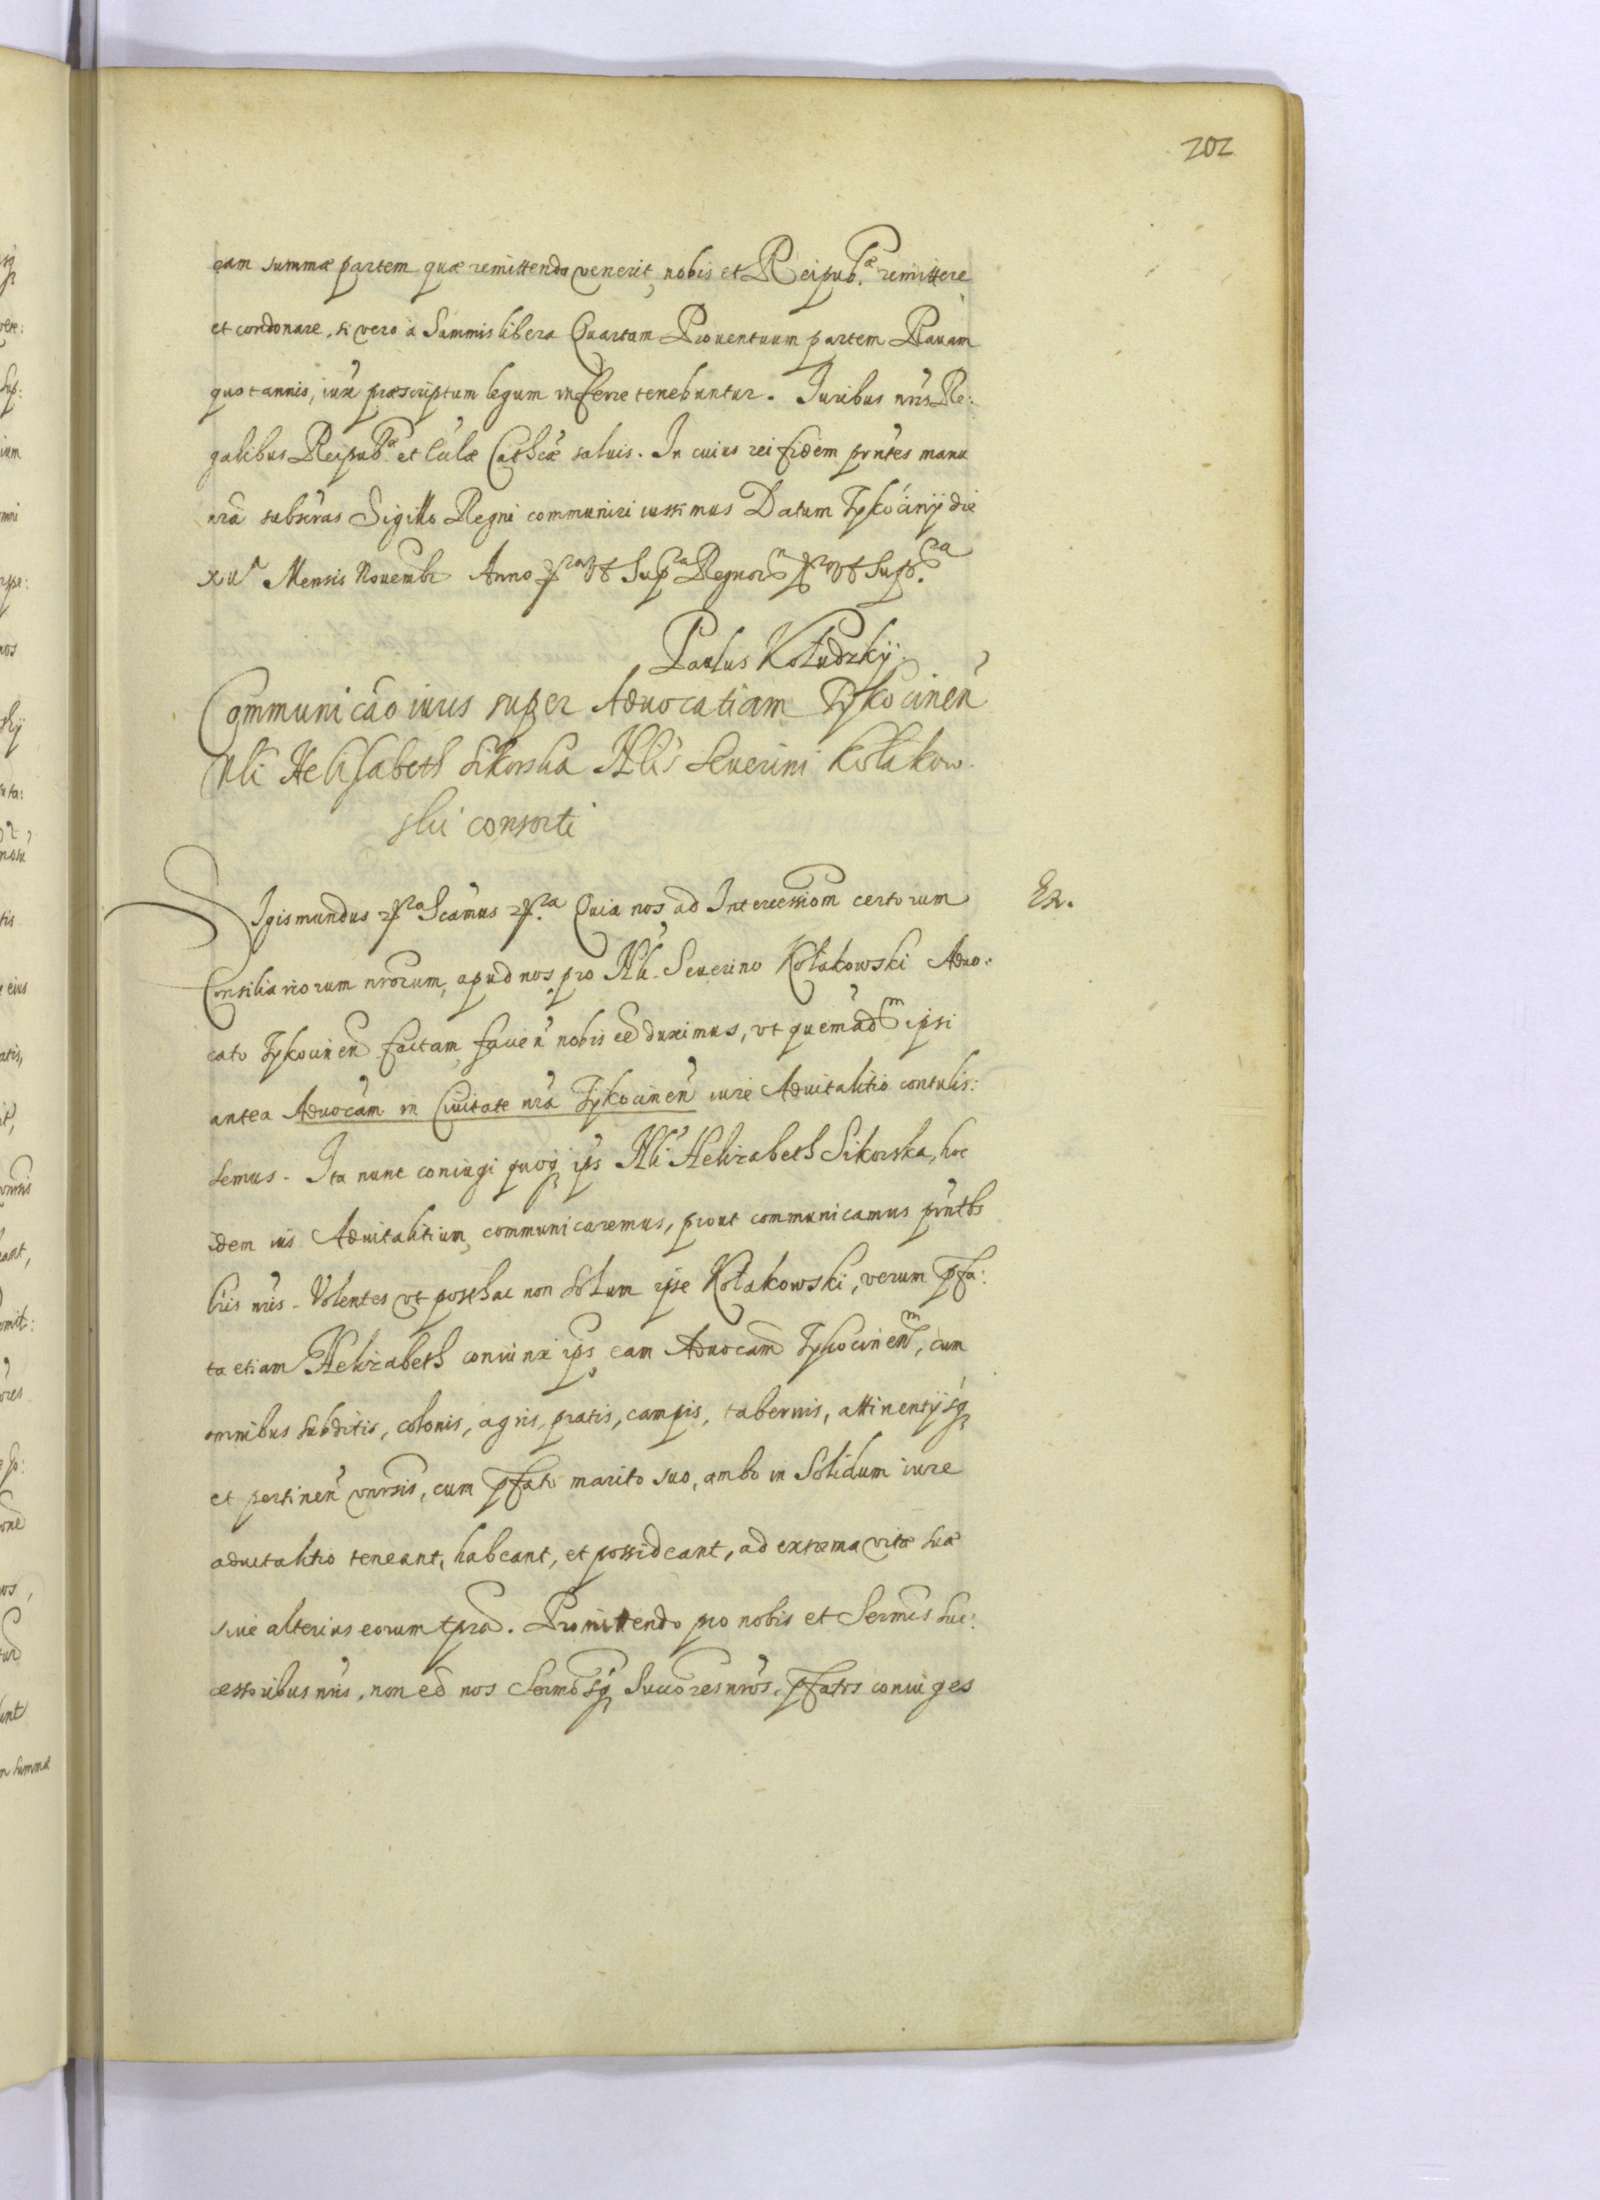 202
eam summæ partem quæ remittenda venerit, nobis et Reipub.æ remittere
et condonare, si vero à Summis libera Quartam Prouentuum partem Rauam
quotannis, iux præscriptum legum inferre tenebuntur. Iuribus nr̃is Re:
galibus Reipub.æ et Eccl̃æ Cathcæ saluis. In cuius rei fidem pr̃ntes manu
nr̃a subscras Sigillo Regni communiri iussimus Datum Tykocinÿ die
Mensis Nouembr Anno ut Supra Regnor ut Supra
Paulus Kołudzkÿ.
Communicão iuris super Aduocatiam Tÿkocinen̄
Nli Helisabeth Sikorska Nlis Seuerini Kołakow.
skii consorti
Sigismundus Scimus Quia nos ad Intercessiom certorum
Ex.
Consiliariorum nrorum, apud nos pro Nli Seuerino Kołakowski Aduo:
cato Tykocinen factam, facien nobis eẽ duximus, vt quemadm ipsi
antea Aduocam in Ciuitate nr̃a Tÿkocinen̄ iure Aduitalitio contulis:
semus. Ita nunc coniugi quoq ips Nli Helizabeth Sikorska, hoc
idem ius Aduitalitium communicaremus, prout communicamus pr̃ntbs
lr̃is nr̃is. Volentes vt posthac non solum ipse Kołakowski, verum pfa:
ta etiam Helizabeth coniunx ips eam Aduocam Tykocinenm, cum
omnibus subditis, colonis, agris, pratis, campis, tabernis, attinentÿsq
et pertinen̄ vnrsis, cum pfato marito suo, ambo in Solidum iure
aduitalitio teneant, habeant, et possideant, ad extrema vitæ suæ
siue alterius eorum tpra. Promittendo pro nobis et Sermis suc:
cessoribus nr̃is, non eẽ nos Sermosq Succores nr̃os, pfatos coniuges